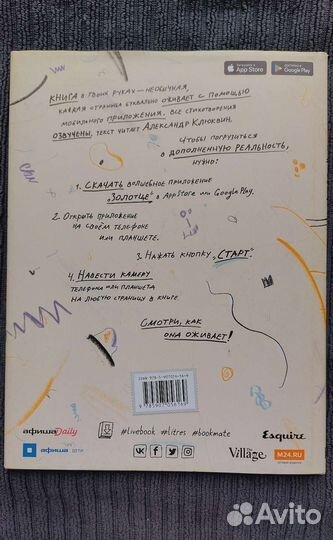 Загрузите в App Store
Доступно в Google Play
Книга в твоих руках — необычная,
каждая страница буквально оживает с помощью
мобильного приложения. Все стихотворения
озвучены, текст читает Александр Клюквин.
Чтобы погрузиться
в дополненную реальность,
нужно:
1. Скачать волшебное приложение
"Золотце" в AppStore или Google Play.
2. Открыть приложение
на своём телефоне
или планшете.
3. Нажать кнопку "Старт".
4. Навести камеру
телефона или планшета
на любую страницу в книге.
Смотри, как
она оживает!
9 785907 056169
афиша Daily
#livebook #litres #bookmate
Esquire
афиша дети
The Village
M24.RU
Avito